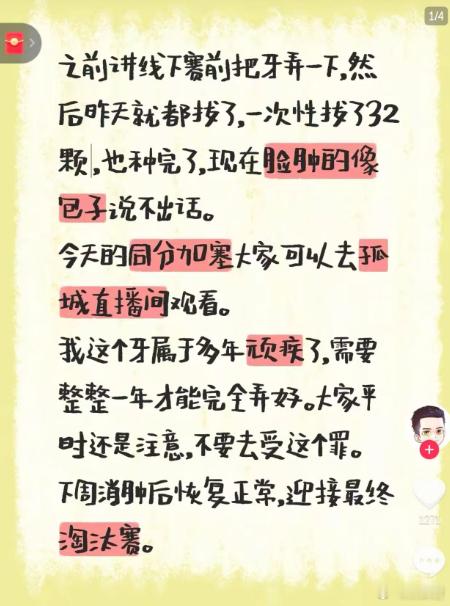 1/4
之前讲线下赛前把牙弄一下,然
后昨天就都拔了,一次性拔了32
颗,也种完了,现在脸肿的像
包子说不出话。
今天的同分加塞大家可以去孤
城直播间观看。
我这个牙属于多年顽疾了,需要
整整一年才能完全弄好。大家平
时还是注意,不要去受这个罪。
下周消肿后恢复正常,迎接最终
淘汰赛。
1271